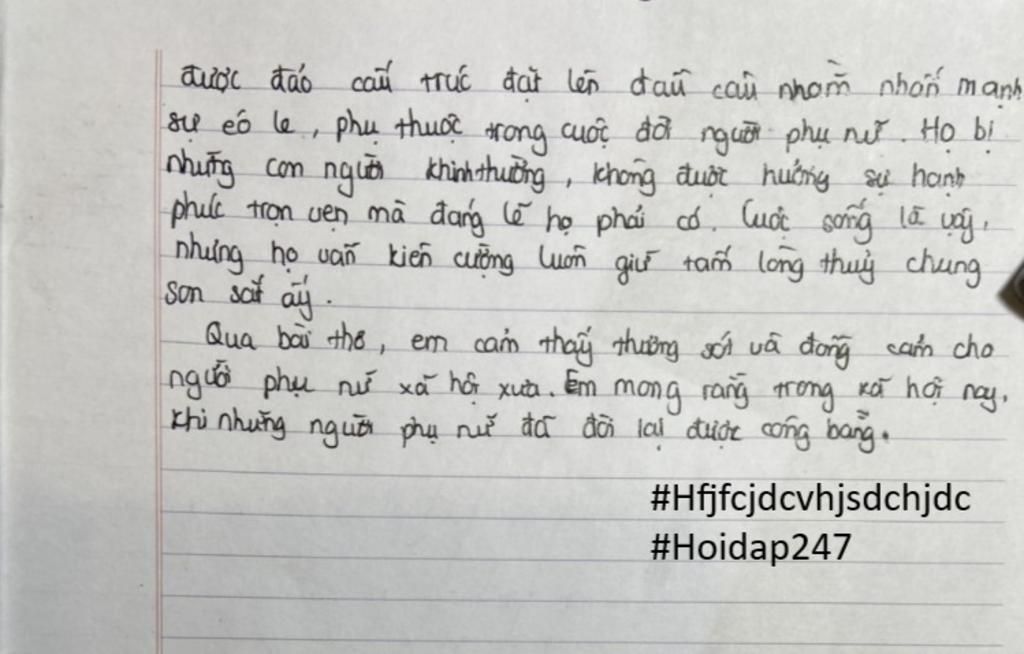 được đảo cấu trúc đặt lên đầu câu nhằm nhấn mạnh
sự éo le, phụ thuộc trong cuộc đời người phụ nữ. Họ bị
những con người khinh thường, không được hưởng sự hạnh
phúc trọn vẹn mà đáng lẽ họ phải có. Cuộc sống là vậy,
nhưng họ vẫn kiên cường luôn giữ tấm lòng thuỷ chung
son sắt ấy.
Qua bài thơ, em cảm thấy thương sót và đồng cảm cho
người phụ nữ xã hội xưa. Em mong rằng trong xã hội nay,
khi những người phụ nữ đã đòi lại được công bằng.
#Hfjfcjdcvhjsdchjdc
#Hoidap247